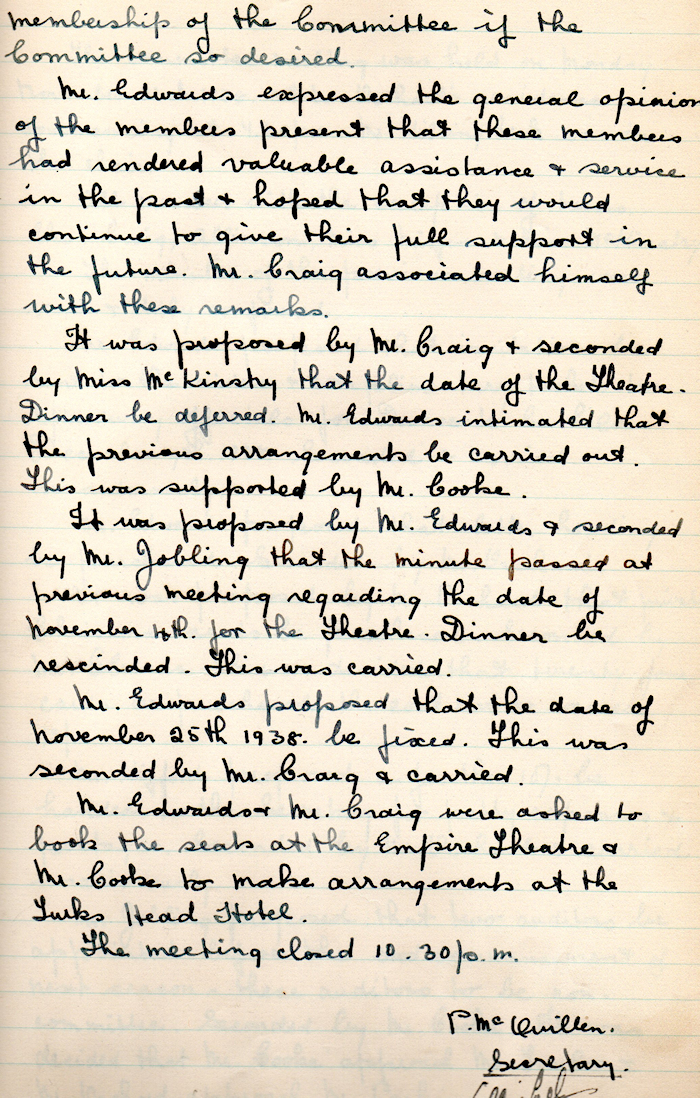 membership of the Committee if the
Committee so desired.
Mr. Edwards expressed the general opinion
of the members present that these members
had rendered valuable assistance & service
in the past & hoped that they would
continue to give their full support in
the future. Mr. Craig associated himself
with these remarks.
It was proposed by Mr. Craig & seconded
by Miss McKinstry that the date of the Theatre.
Dinner be deferred. Mr. Edwards intimated that
the previous arrangements be carried out.
This was supported by Mr. Cooke.
It was proposed by Mr. Edwards & seconded
by Mr. Jobling that the minute passed at
previous meeting regarding the date of
November for the Theatre. Dinner be
rescinded. This was carried.
Mr. Edwards proposed that the date of
November 25th 1938. be fixed. This was
seconded by Mr. Craig & carried.
Mr. Edwards & Mr. Craig were asked to
book the seats at the Empire Theatre &
Mr. Cooke to make arrangements at the
Turks Head Hotel.
The meeting closed 10.30 p.m.
P. McQuillen.
Secretary.